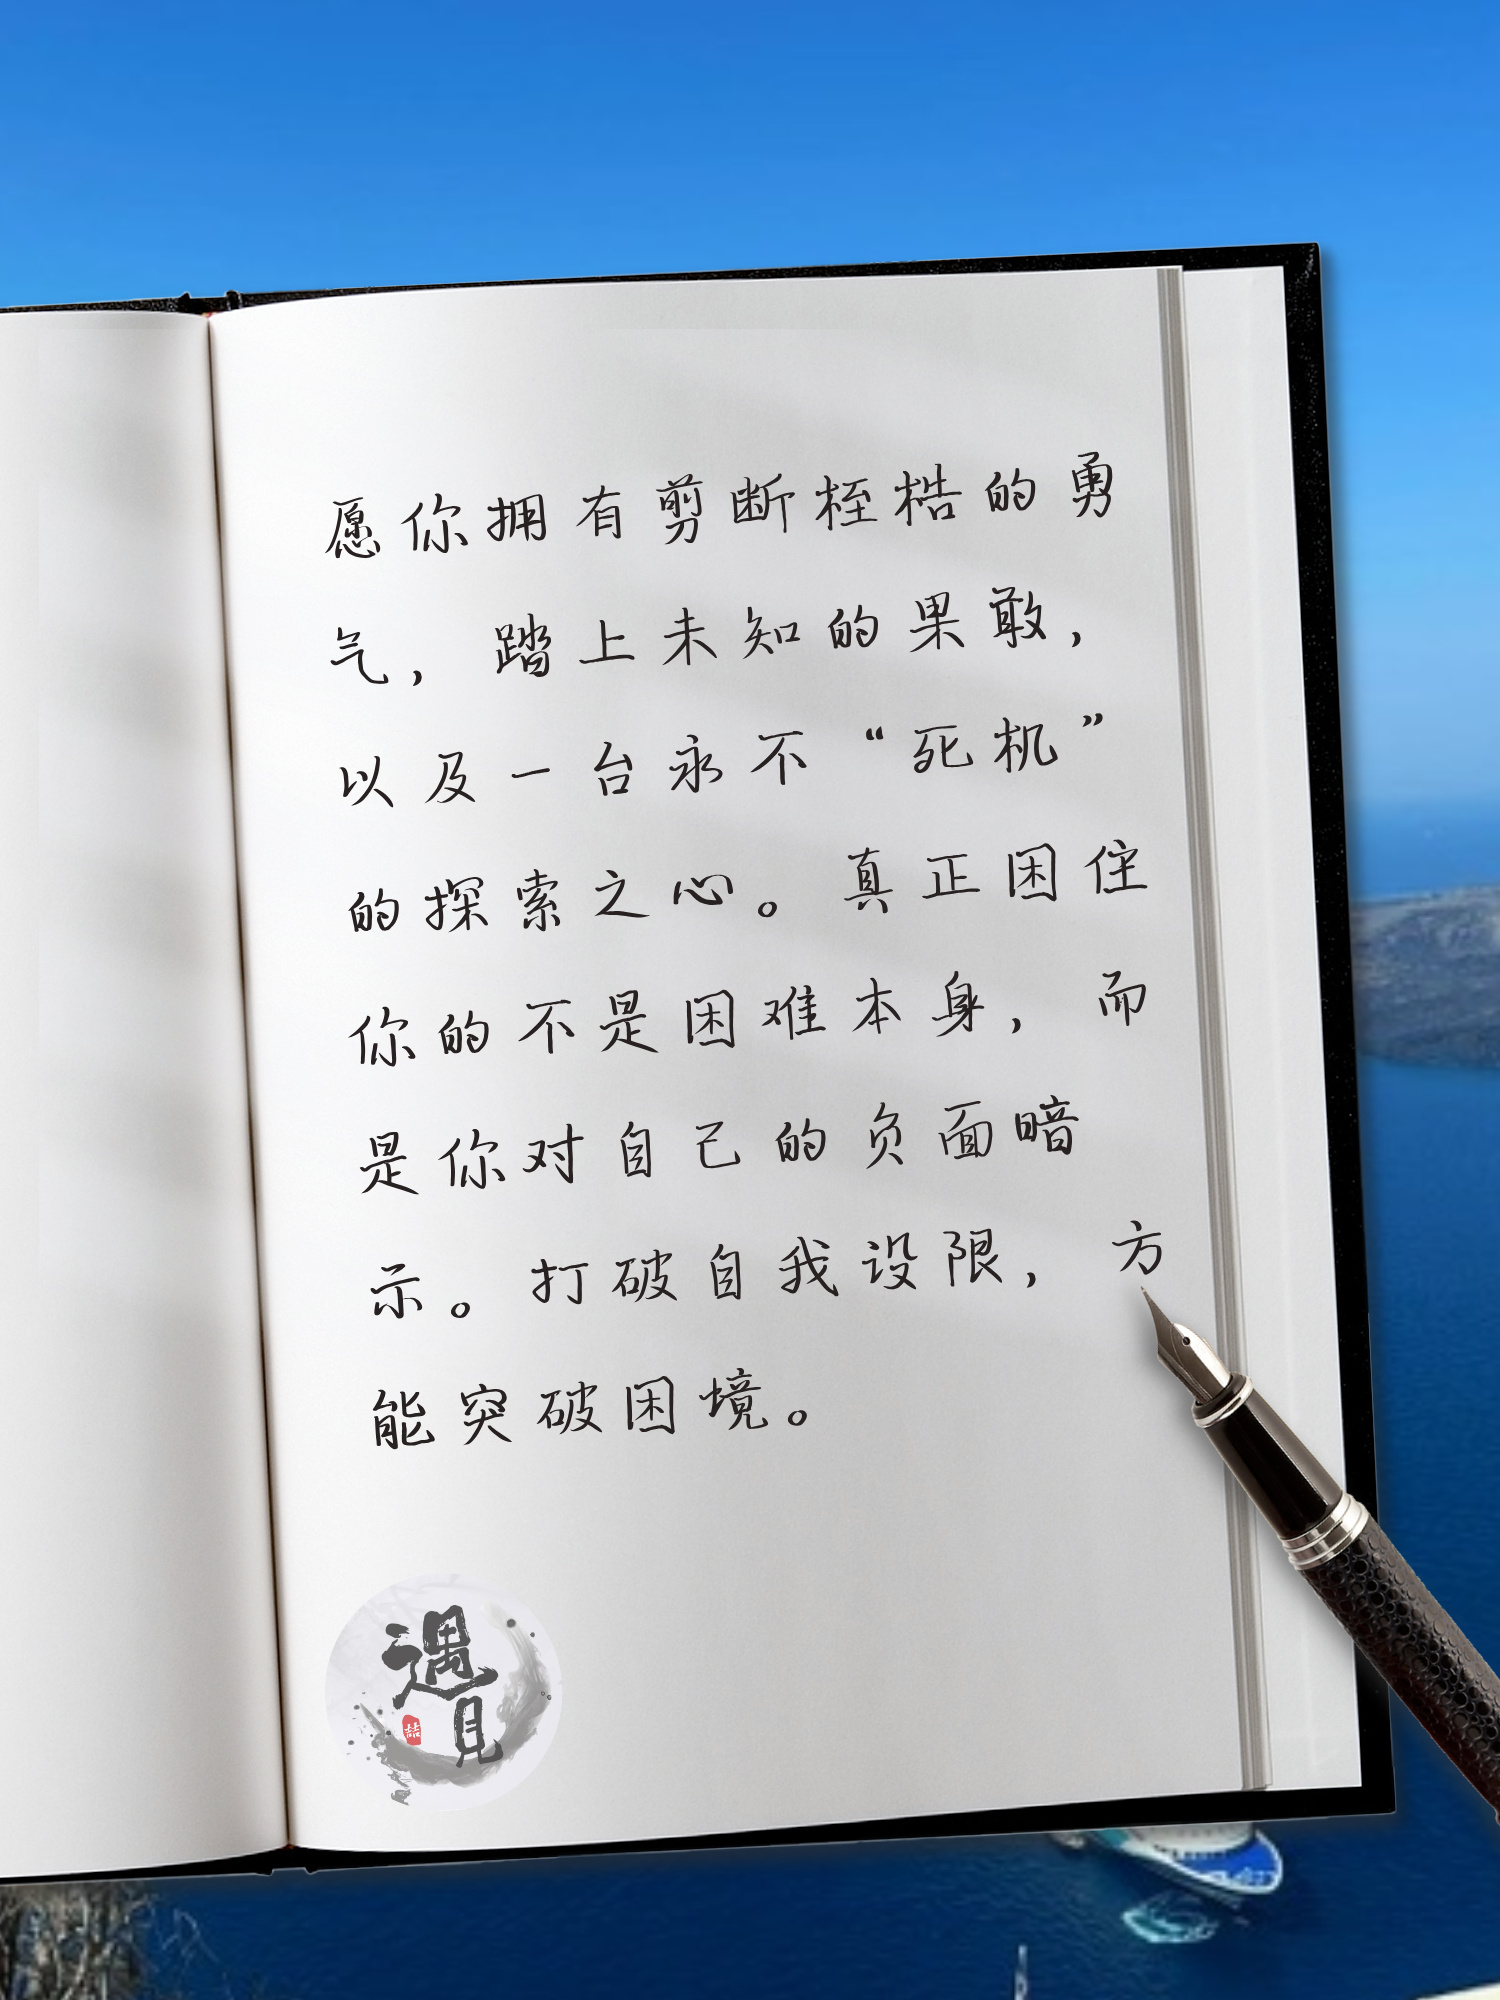 愿你拥有剪断桎梏的勇
气，踏上未知的果敢，
以及一台永不“死机”
的探索之心。真正困住
你的不是困难本身，而
是你对自己的负面暗
示。打破自我设限，方
能突破困境。
遇
見
喆